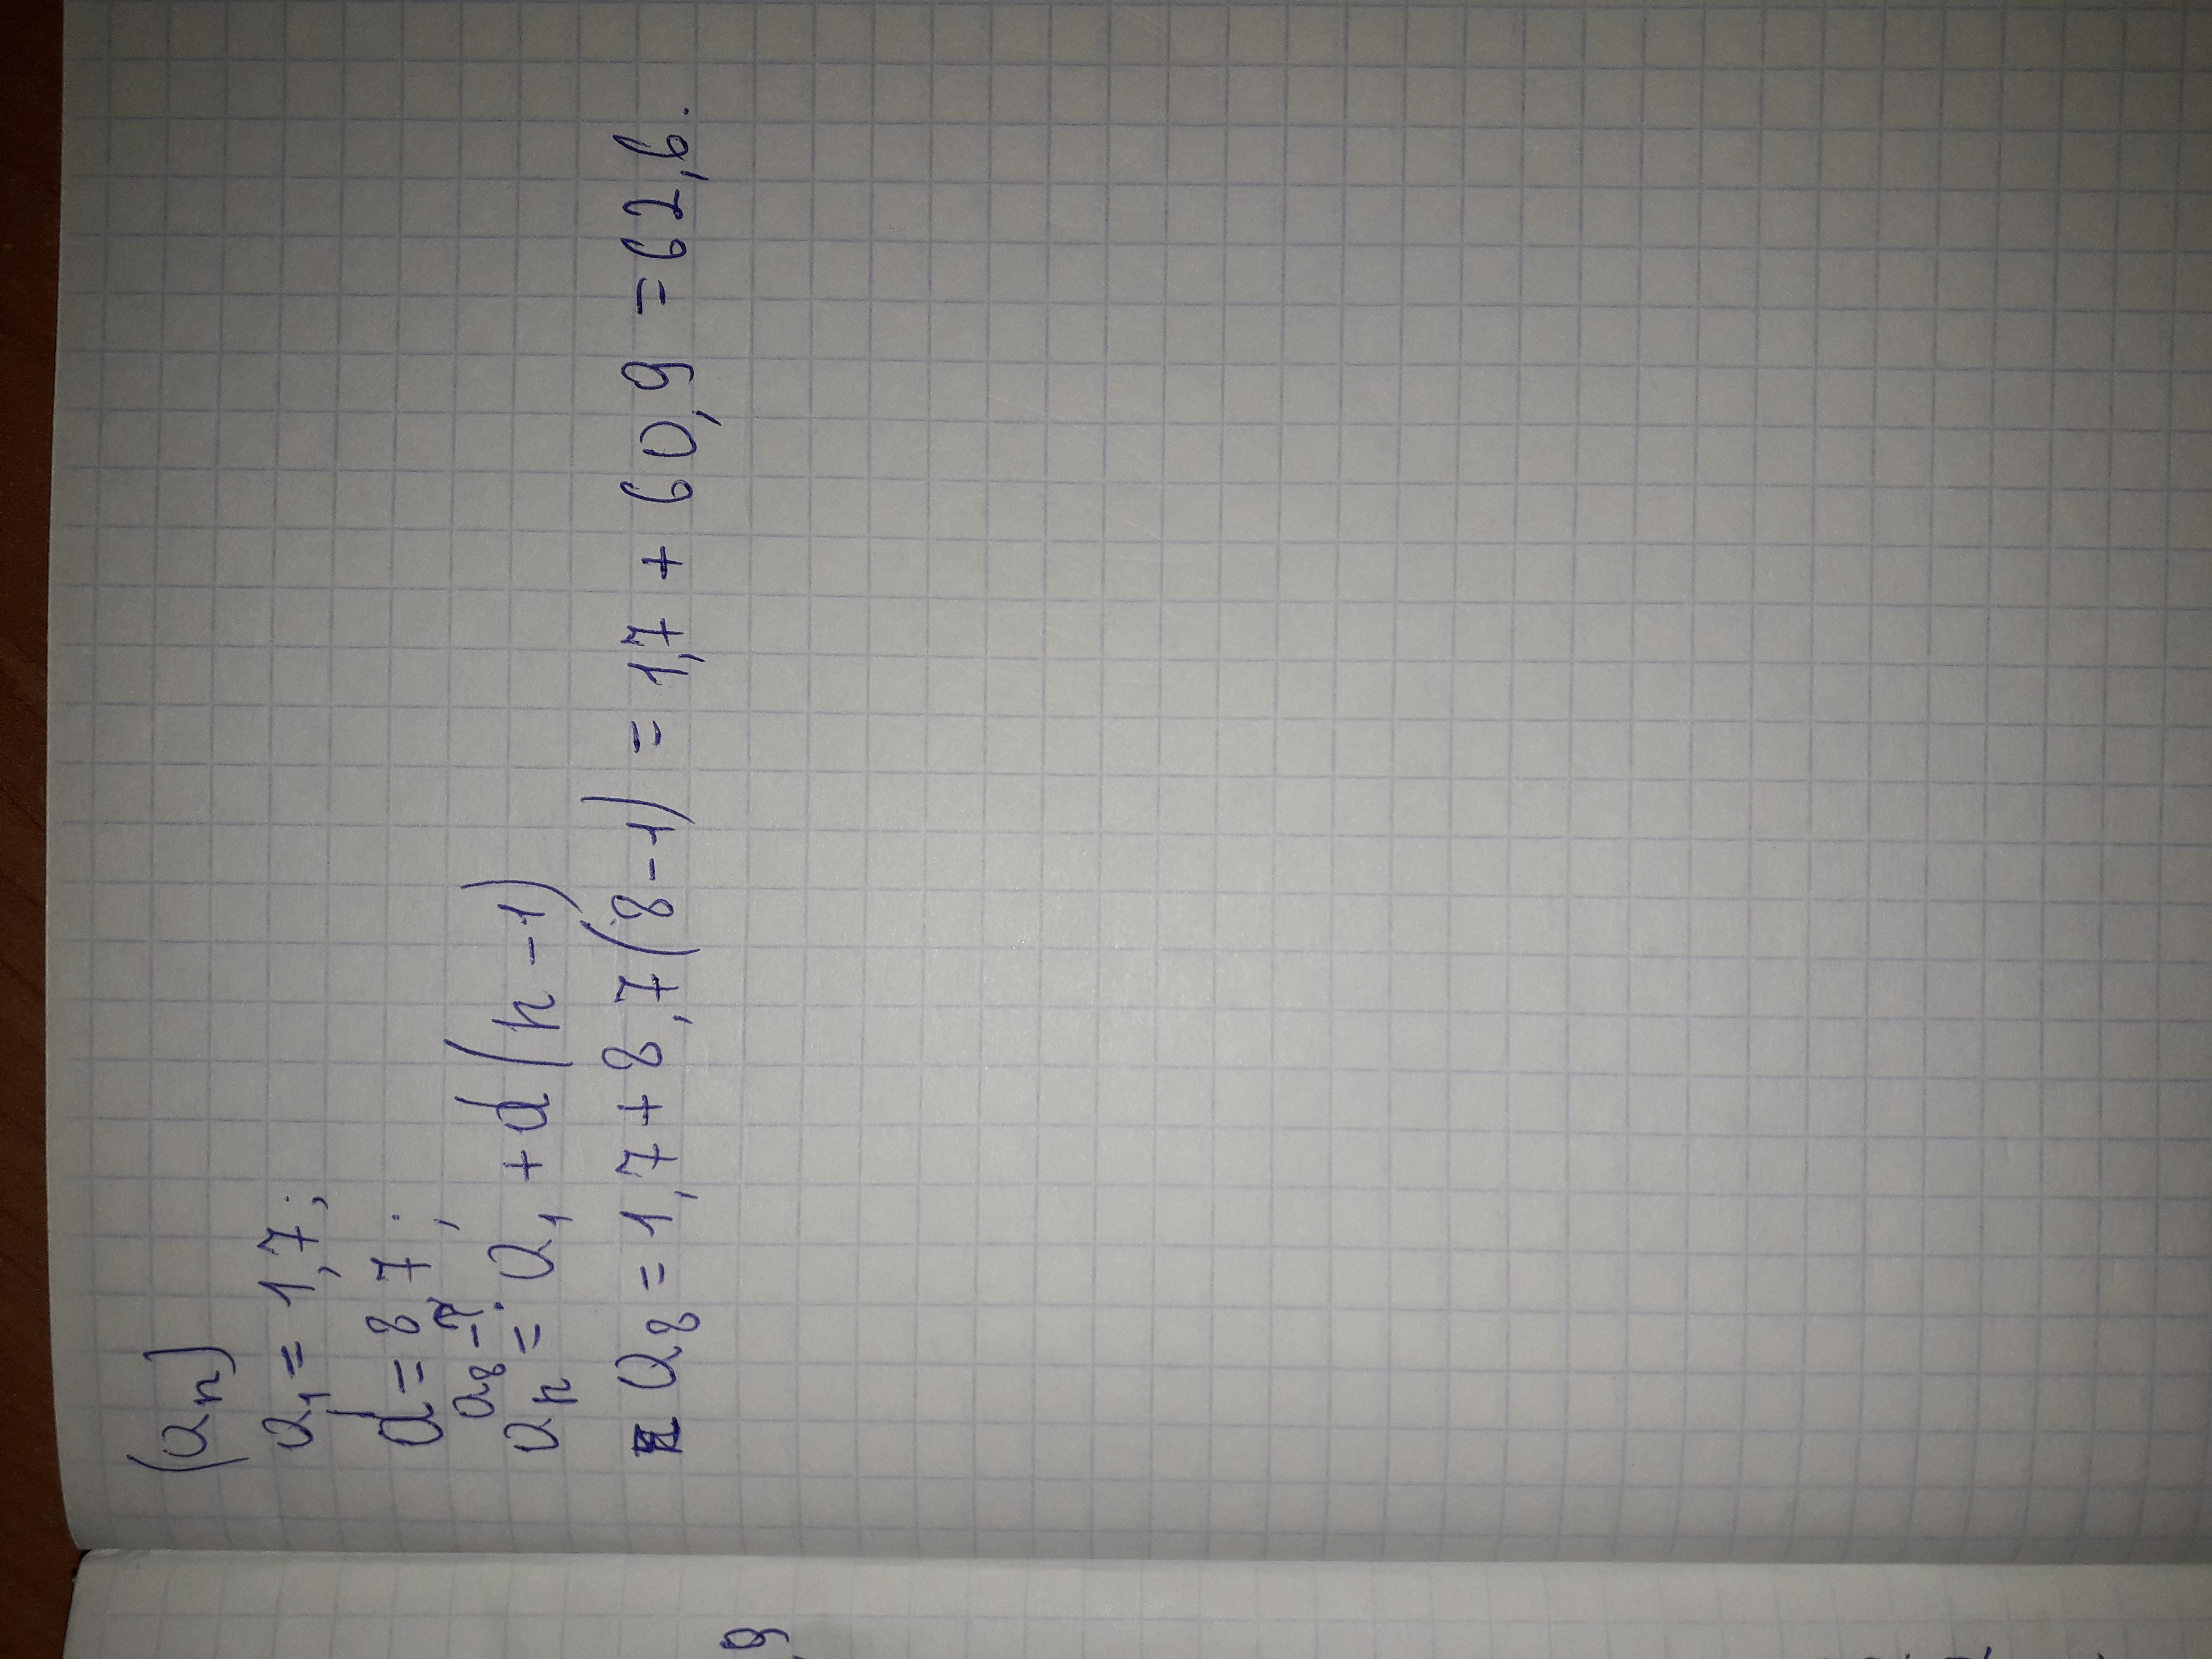 (aₙ)
a₁ = 1,7;
d = 8,7;
a₈ - ?
aₙ = a₁ + d(n-1)
a₈ = 1,7 + 8,7(8-1) = 1,7 + 60,9 = 62,6.
9